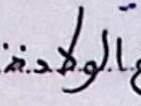 الولادة